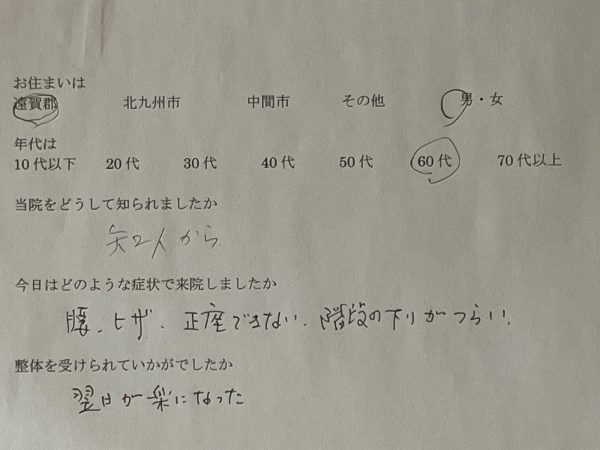 お住まいは
遠賀郡 北九州市 中間市 その他 男・女
年代は
10代以下 20代 30代 40代 50代 60代 70代以上
当院をどうして知られましたか
知人から
今日はどのような症状で来院しましたか
腰、ヒザ、正座できない、階段の下りがつらい、
整体を受けられていかがでしたか
翌日が楽になった